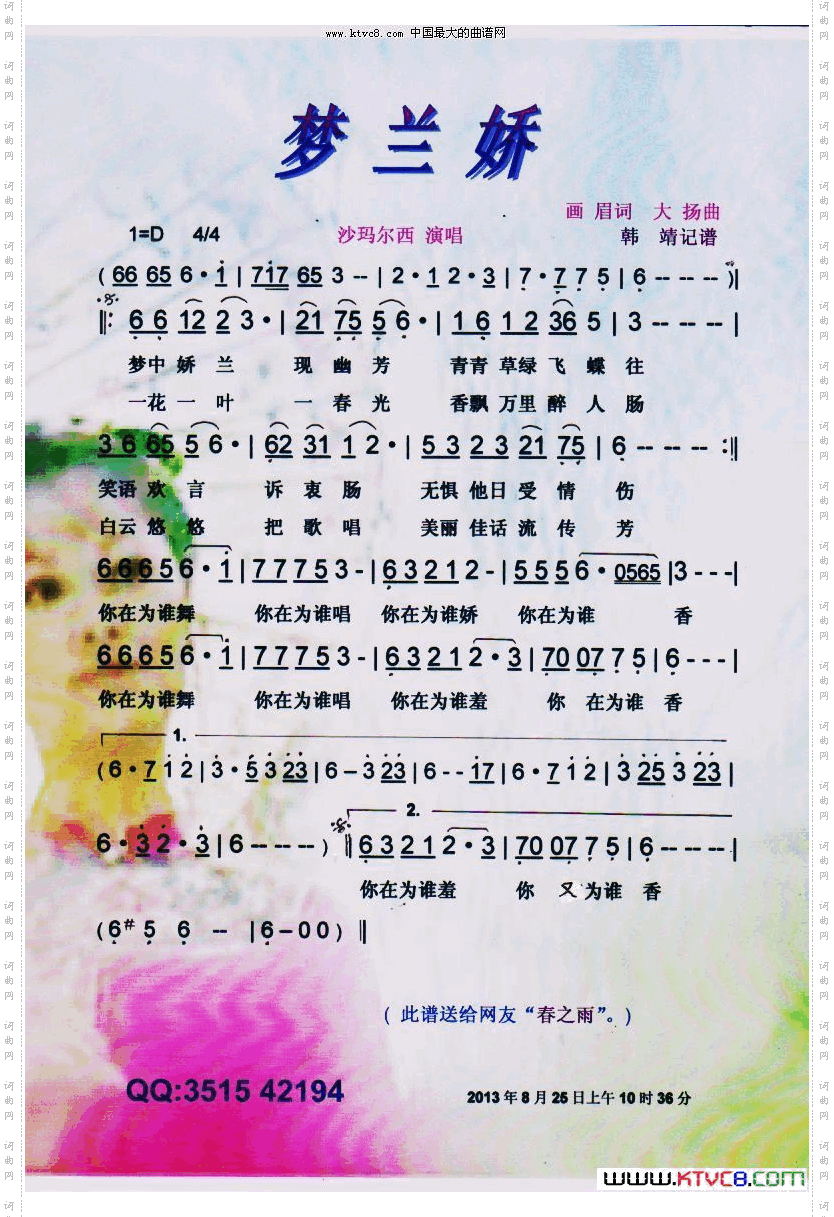 www.ktvc8.com 中国最大的曲谱网
梦兰娇
画 眉词 大 扬曲
1=D 4/4 沙玛尔西 演唱 韩 靖记谱
( 66 65 6 · i | 7i7 65 3 -- | 2 · 1 2 · 3 | 7 · 7 7 5 | 6 -- -- -- )‖
‖: 6 6 12 2 3 · | 21 75 5 6 · | 1 6 1 2 36 5 | 3 -- -- -- |
梦中 娇 兰 现 幽 芳 青青 草绿 飞 蝶 往
一花 一 叶 一 春 光 香飘 万里 醉 人 肠
3 6 65 5 6 · | 62 31 1 2 · | 5 3 2 3 21 75 | 6 -- -- -- :‖
笑语 欢 言 诉 衷 肠 无惧 他日 受 情 伤
白云 悠 悠 把 歌 唱 美丽 佳话 流 传 芳
6 6 6 5 6 · i | 7 7 7 5 3 - | 6 3 2 1 2 - | 5 5 5 6 · 0565 | 3 - - - |
你在为谁舞 你在为谁唱 你在为谁娇 你在为谁 香
6 6 6 5 6 · i | 7 7 7 5 3 - | 6 3 2 1 2 · 3 | 70 07 7 5 | 6 - - - |
你在为谁舞 你在为谁唱 你在为谁羞 你 在为谁 香
1.
( 6 · 7 i 2 | 3 · 5 3 23 | 6 – 3 23 | 6 - - i7 | 6 · 7 i 2 | 3 25 3 23 |
6 · 3 2 · 3 | 6 -- -- -- ) ‖ 6 3 2 1 2 · 3 | 70 07 7 5 | 6 -- -- -- |
2.
你在为谁羞 你 又 为谁 香
( 6 # 5 6 -- | 6 – 0 0 ) ‖
( 此谱送给网友“春之雨”。)
QQ:3515 42194
2013 年 8 月 25 日上午 10 时 36 分
www.KTVC8.com
词曲网